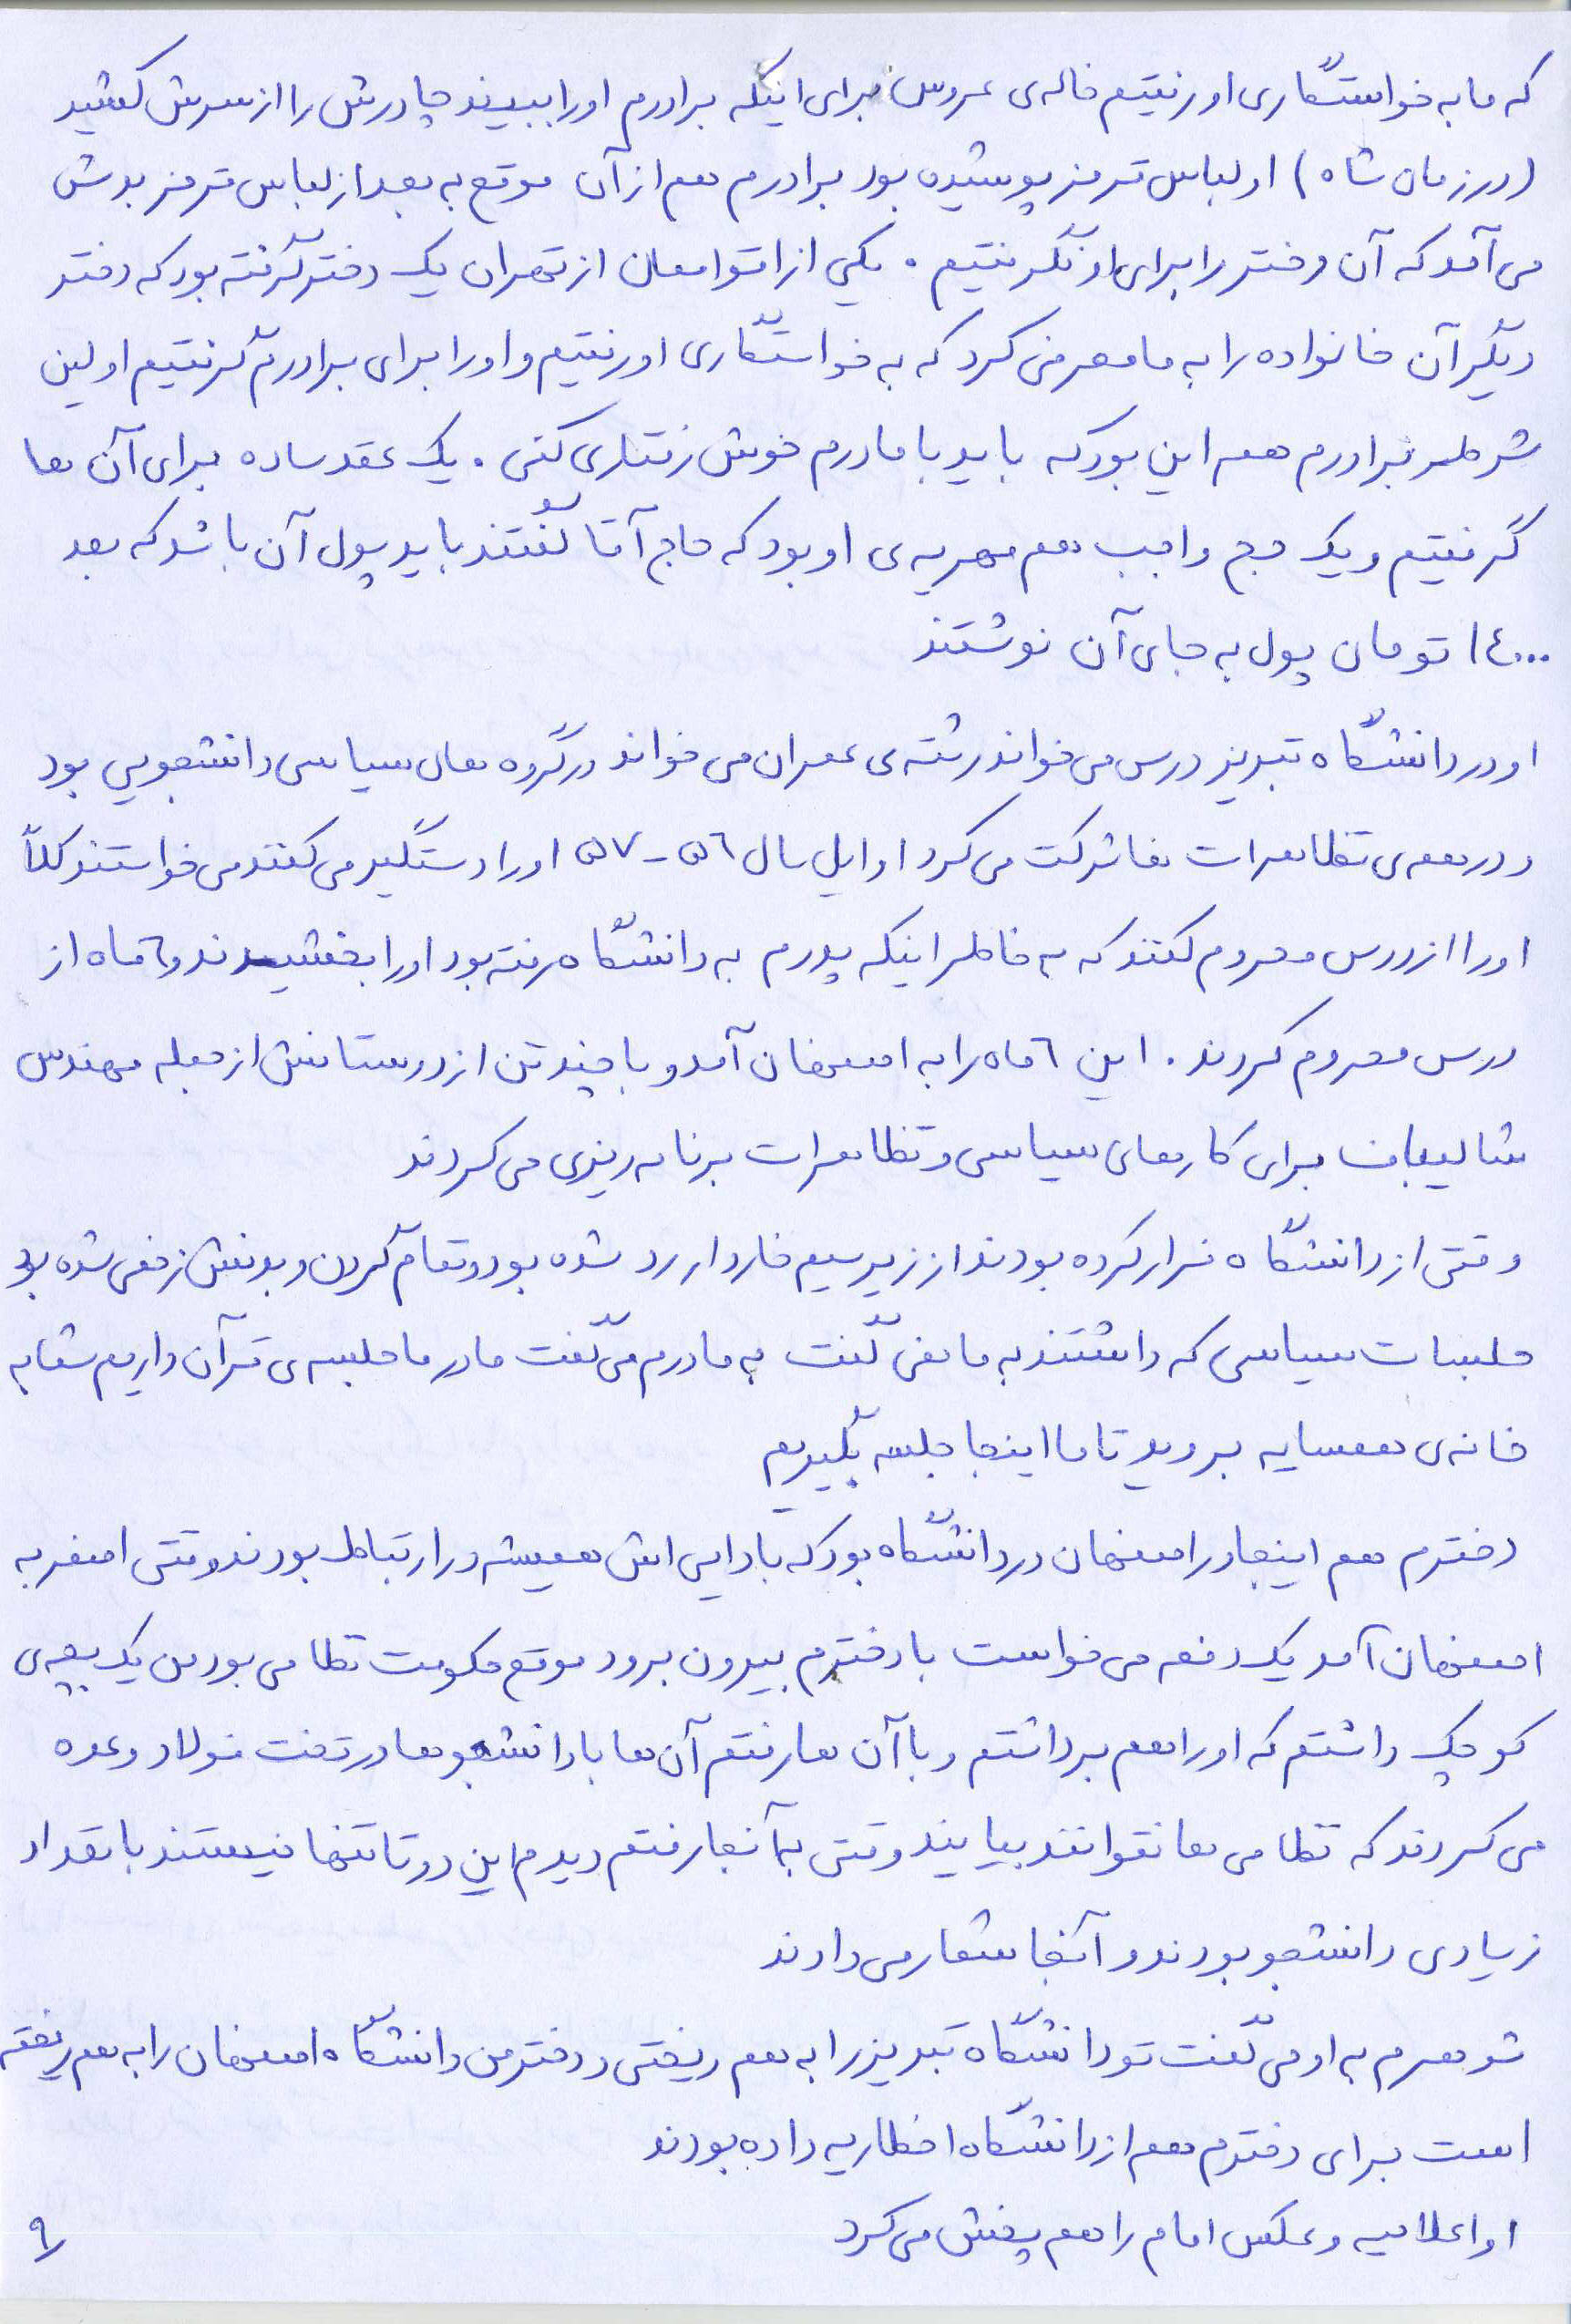 که ما به خواستگاری او رفتیم خاله‌ی عروس برای اینکه برادرم او را ببیند چادرش را از سرش کشید
(در زمان شاه) او لباس قرمز پوشیده بود برادرم هم از آن موقع به بعد از لباس قرمز بدش
می‌آمد که آن دختر را برای او نگرفتیم . یکی از اقوامان از تهران یک دختر گرفته بود که دختر
دیگر آن خانواده را به ما معرفی کرد که به خواستگاری او رفتیم و او را برای برادرم گرفتیم اولین
شرط برادرم هم این بود که باید با مادرم خوش رفتاری کنی . یک عقد ساده برای آن ها
گرفتیم و یک حج واجب هم مهریه‌ی او بود که حاج آقا گفتند باید پول آن باشد که بعد
۱٤۰۰۰ تومان پول به جای آن نوشتند
او در دانشگاه تبریز درس می‌خواند رشته‌ی عمران می‌خواند در گروه های سیاسی دانشجویی بود
و در همه‌ی تظاهرات ها شرکت می‌کرد اوایل سال ۵٦-۵۷ او را دستگیر می‌کنند می‌خواستند کلاً
او را از درس محروم کنند که به خاطر اینکه پدرم به دانشگاه رفته بود او را بخشیدند و ٦ ماه از
درس محروم کردند . این ٦ ماه را به اصفهان آمد و با چند تن از دوستانش از جمله مهندس
برای کارهای سیاسی و تظاهرات برنامه ریزی می‌کردند
وقتی از دانشگاه فرار کرده بودند از زیر سیم خاردار رد شده بود و تمام گردن و بدنش زخمی شده بود
جلسات سیاسی که داشتند به ما نمی گفت به مادرم می‌گفت مادر ما جلسه‌ی قرآن داریم شما به
خانه‌ی همسایه بروید تا ما اینجا جلسه بگیریم
دخترم هم اینجا در اصفهان در دانشگاه بود که با دایی اش همیشه در ارتباط بودند وقتی اصغر به
اصفهان آمد یک دفعه می‌خواست با دخترم بیرون برود موقع حکومت نظامی بود من یک بچه‌ی
کوچک داشتم که او را هم برداشتم و با آن ها رفتم آن ها با دانشجو ها در تخت فولاد وعده
می‌کردند که نظامی ها نتوانند بیایند وقتی به آنجا رفتم دیدم این دو تا تنها نیستند با تعداد
زیادی دانشجو بودند و آنجا شعار می‌دادند
شوهرم به او می‌گفت تو دانشگاه تبریز را به هم ریختی و دختر من دانشگاه اصفهان را به هم ریخته
است برای دخترم هم از دانشگاه اخطاریه داده بودند
او اعلامیه و عکس امام را هم پخش می‌کرد
۹